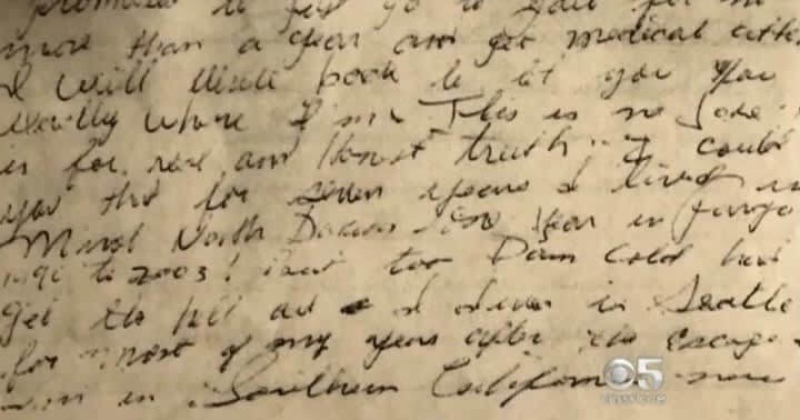 more than a year and get medical atte
I will write back to let you you
exactly where I'm This is no Joke
is for real and Honest truth.. I could
you that for seven years I lived in
Minot North Dakota year in fargo
to 2003! but too Damn Cold had
get the hell out I lived in Seattle
for most of my years after the escape
in Southern California now
CBS 5